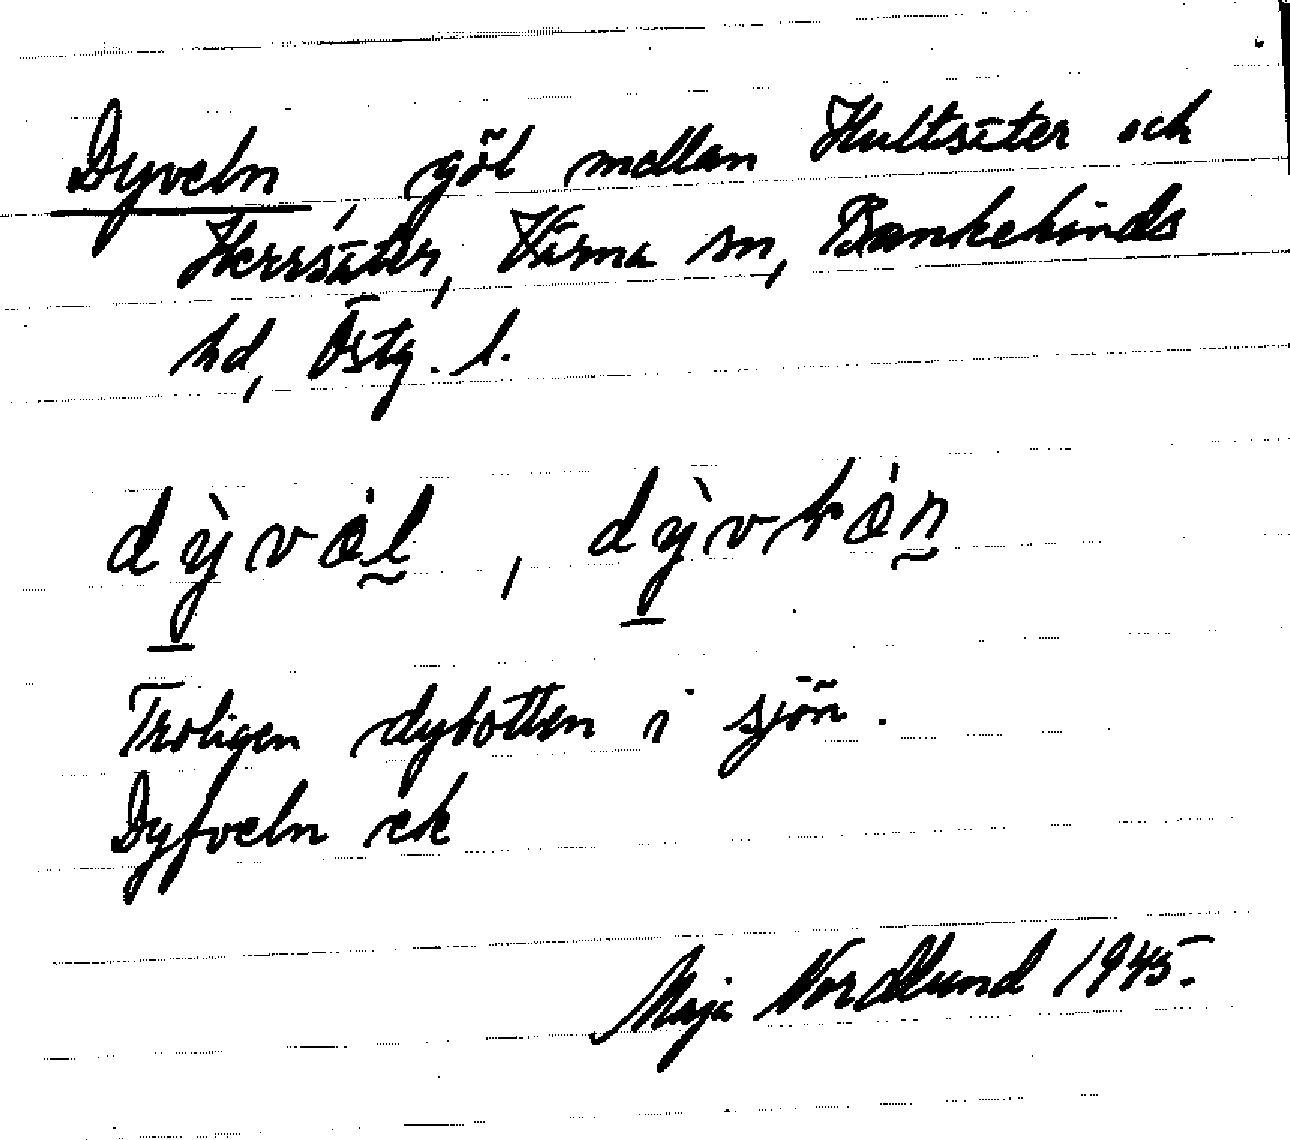 Dyveln, göl mellan Hultsäter och
Herrsäter, Värna sn, Bankekinds
hd, Östg. l.
dỳvəl, dỳvhən
Troligen dybotten i sjön.
Dyfveln ek
Maja Nordlund 1945.